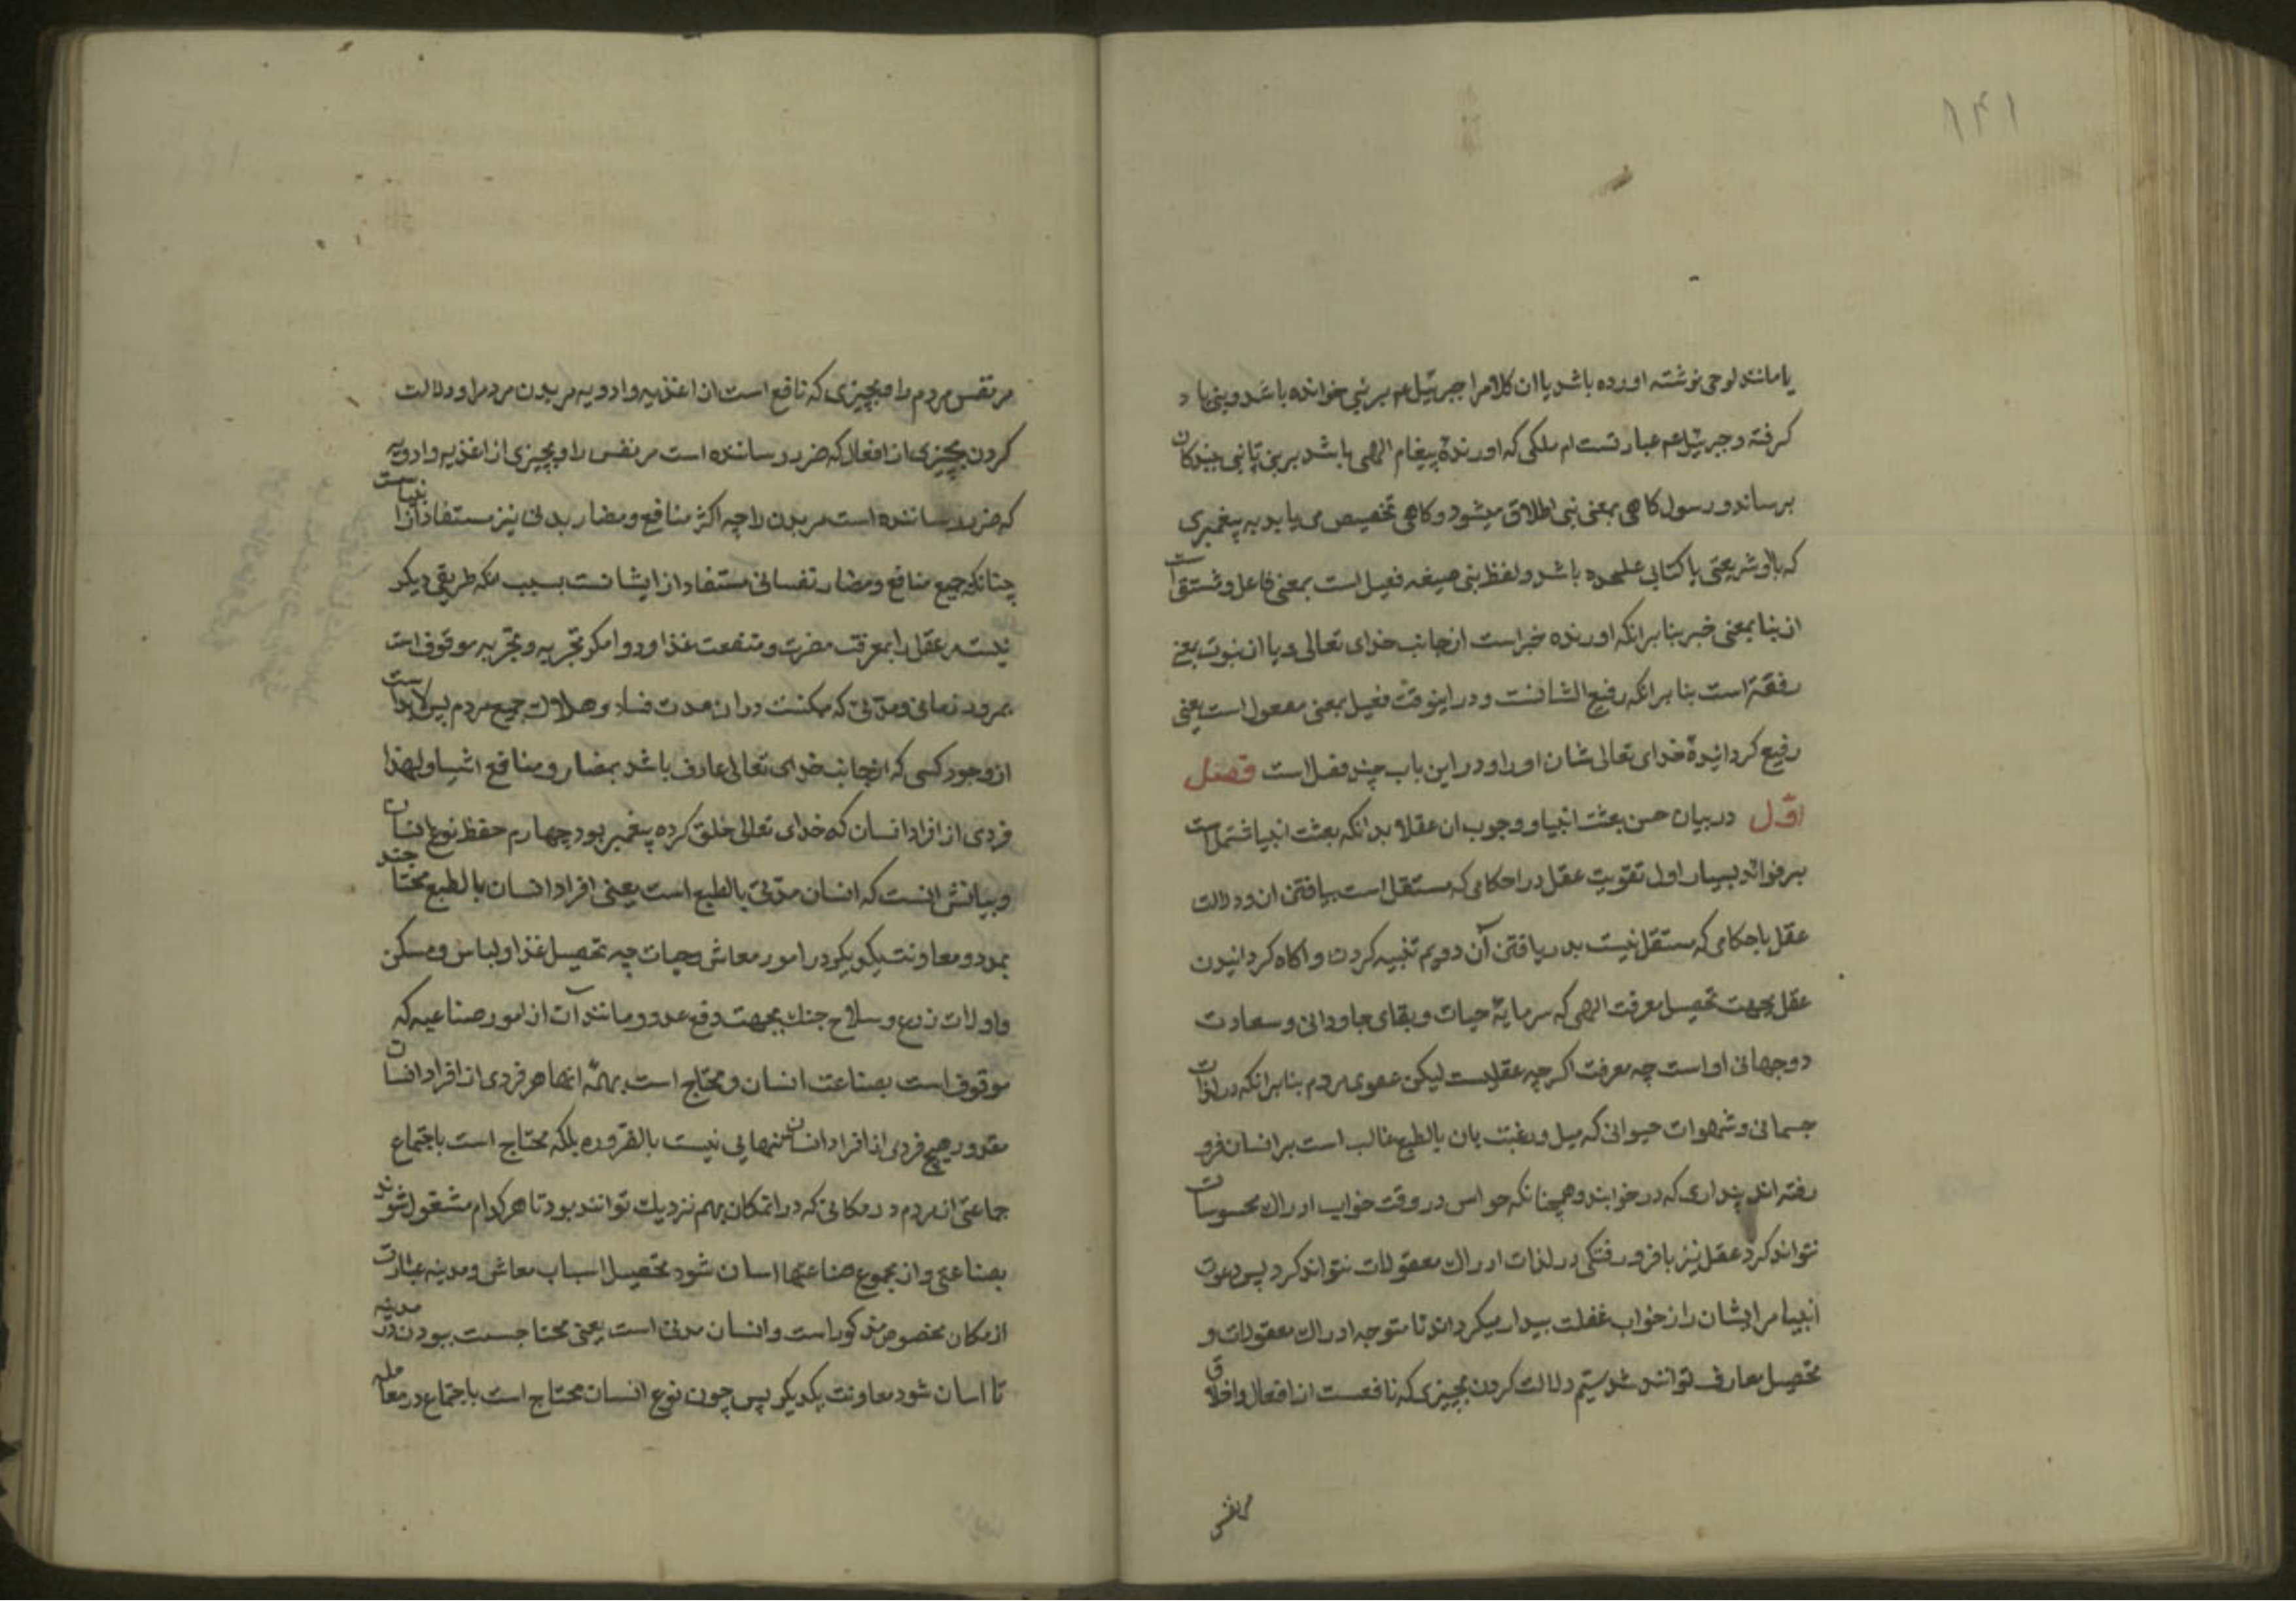 ۱۴۱
یا مانند لوحی نوشته اورده باشد یا ان کلام را جبرئیل عم بر نبی خوانده باشد و نبی یاد
کرفته و جبرئیل عم عبارتست از ملکی که اورندهٔ پیغام الهی باشد بر نبی تا نبی ببندکان
برساند و رسول کاهی بمعنی نبی اطلاق میشود و کاهی تخصیص می یابد به پیغمبری
که با او شریعتی یا کتابی علیحده باشد و لفظ نبی صیغه فعیل است بمعنی فاعل و مشتق است
از نبا بمعنی خبر بنا برانکه اورنده خبر است از جانب خدای تعالی و یا از نبوت بمعنی
رفعة است بنا برانکه رفیع الشانست و در اینوقت فعیل بمعنی مفعول است یعنی
رفیع کردانیدهٔ خدای تعالی شان او را و در این باب چند فصل است فصل
اوّل در بیان حسن بعثت انبیا و وجوب ان عقلا بدانکه بعثت انبیا مشتمل است
بر فوائد بسیار اول تقویت عقل در احکامی که مستقل است بیافتن ان و دلالت
عقل باحکامی که مستقل نیست بدریافتن آن دویم تنبیه کردن و اکاه کردانیدن
عقل بجهت تحصیل معرفت الهی که سرمایهٔ حیات و بقای جاودانی و سعادت
دوجهانی او است چه معرفت اکرچه عقلیست لیکن عموم مردم بنا برانکه در لذات
جسمانی و شهوات حیوانی که میل و رغبت بان بالطبع غالب است بر انسان فرو
رفته اند پنداری که در خوابند و همچنانکه حواس در وقت خواب ادراک محسوسات
نتواند کرد عقل نیز با فرو رفتکی در لذات ادراک معقولات نتواند کرد پس دعوت
انبیا مر ایشان را از خواب غفلت بیدار میکرداند تا متوجه ادراک معقولات و
تحصیل معارف توانند شد سیّم دلالت کردن بچیزی که نافعست از افعال و اخلاق
مر نفس
مر نفس مردم را و بچیزی که نافع است از اغذیه و ادویه مر بدن مردم را و دلالت
کردن بچیزی از افعال که ضرر رساننده است مر نفس را و بچیزی از اغذیه و ادویه
که ضرر رساننده است مر بدن را چه اکثر منافع و مضار بدنی نیز مستفاد از انبیاست
چنانکه جمیع منافع و مضار نفسانی مستفاد از ایشانست بسبب انکه طریقی دیکر
نیست مر عقل را بمعرفت مضرت و منفعت غذا و دوا مکر تجربه و تجربه موقوف است
بمرور زمانی و مدّتی که ممکنست در ان مدت فساد و هلاک جمیع مردم پس لابد است
از وجود کسی که از جانب خدای تعالی عارف باشد بمضار و منافع اشیا و لهذا
فردی از افراد انسان که خدای تعالی خلق کرده پیغمبر بود چهارم حفظ نوع انسان
و بیانش انست که انسان مدّنی بالطبع است یعنی افراد انسان بالطبع محتاجند
بمدد و معاونت یکدیکر در امور معاش و حیات چه تحصیل غذا و لباس و مسکن
و اولات زرع و سلاح جنک بجهت دفع عدو و مانند آن از امور صناعیه که
موقوف است بصناعت انسان و محتاج است بهمهٔ انها هر فردی از افراد انسان
مقدور هیچ فردی از افراد انسان بتنهایی نیست بالضّروره بلکه محتاج است باجتماع
جماعتی از مردم در مکانی که در انمکان بهم نزدیک توانند بود تا هر کدام مشغول شوند
بصناعتی و از مجموع صناعتها اسان شود تحصیل اسباب معاش و مدینه عبارت
از مکان مخصوص مذکور است و انسان مدنی است یعنی محتاجست ببودن در مدینه
تا اسان شود معاونت یکدیکر پس چون نوع انسان محتاج است باجتماع در معامله